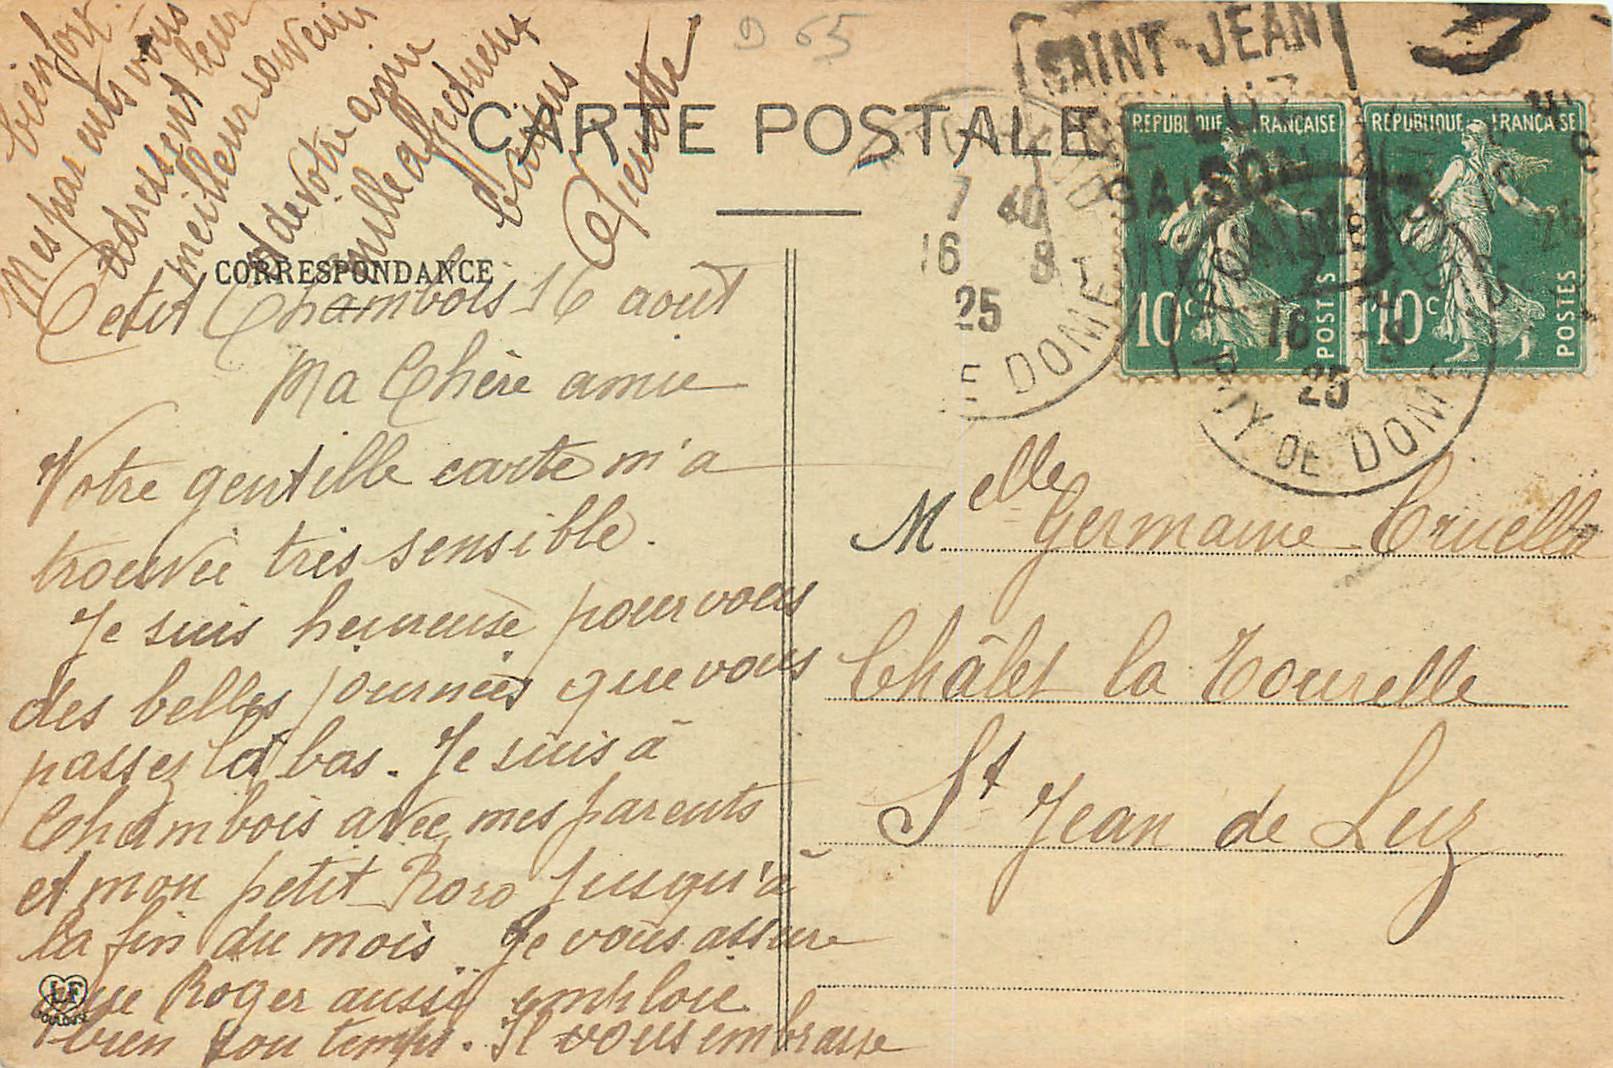 D 65
SAINT-JEAN
DE LUZ
SAISON
CARTE POSTALE
7 40
16 8
25
E DOME
RÉPUBLIQUE FRANÇAISE
10c POSTES
RÉPUBLIQUE FRANÇAISE
10c POSTES
16 -8
25
PUY DE DOME
CORRESPONDANCE
Petit Chambois 16 août
Ma Chère amie
Votre gentille carte m'a
trouvée très sensible.
Je suis heureuse pour vous
des belles journées que vous
passez là bas. Je suis à
Chambois avec mes parents
et mon petit Roro jusqu'à
la fin du mois. Je vous assure
que Roger aussi emploie
bien son temps. Il vous embrasse
bien fort.
Mes parents vous
adressent leur
meilleur souvenir
et de votre amie
mille affectueux
baisers
Pierrette
Melle Germaine Truelle
Châlet la Tourelle
St Jean de Luz
LF
TOULOUSE